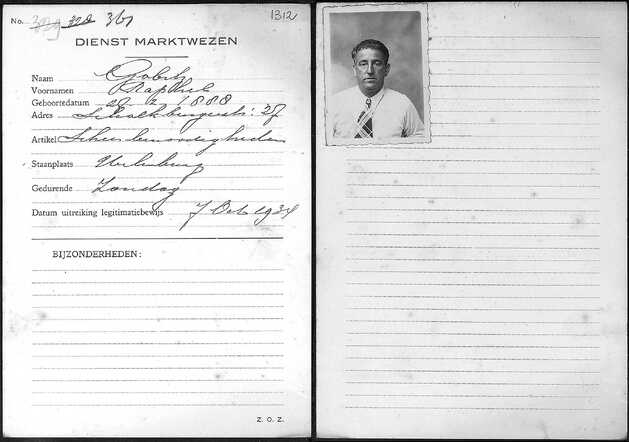 No. 329 328 361
1312
DIENST MARKTWEZEN
Naam Gobitz
Voornamen Raphael
Geboortedatum 28 2 1888
Adres Schalkburgerstr: 37
Artikel Scheerbenoodigheden
Staanplaats Uilenburg
Gedurende Zondag
Datum uitreiking legitimatiebewijs 7 Oct 1934
BIJZONDERHEDEN:
Z. O. Z.